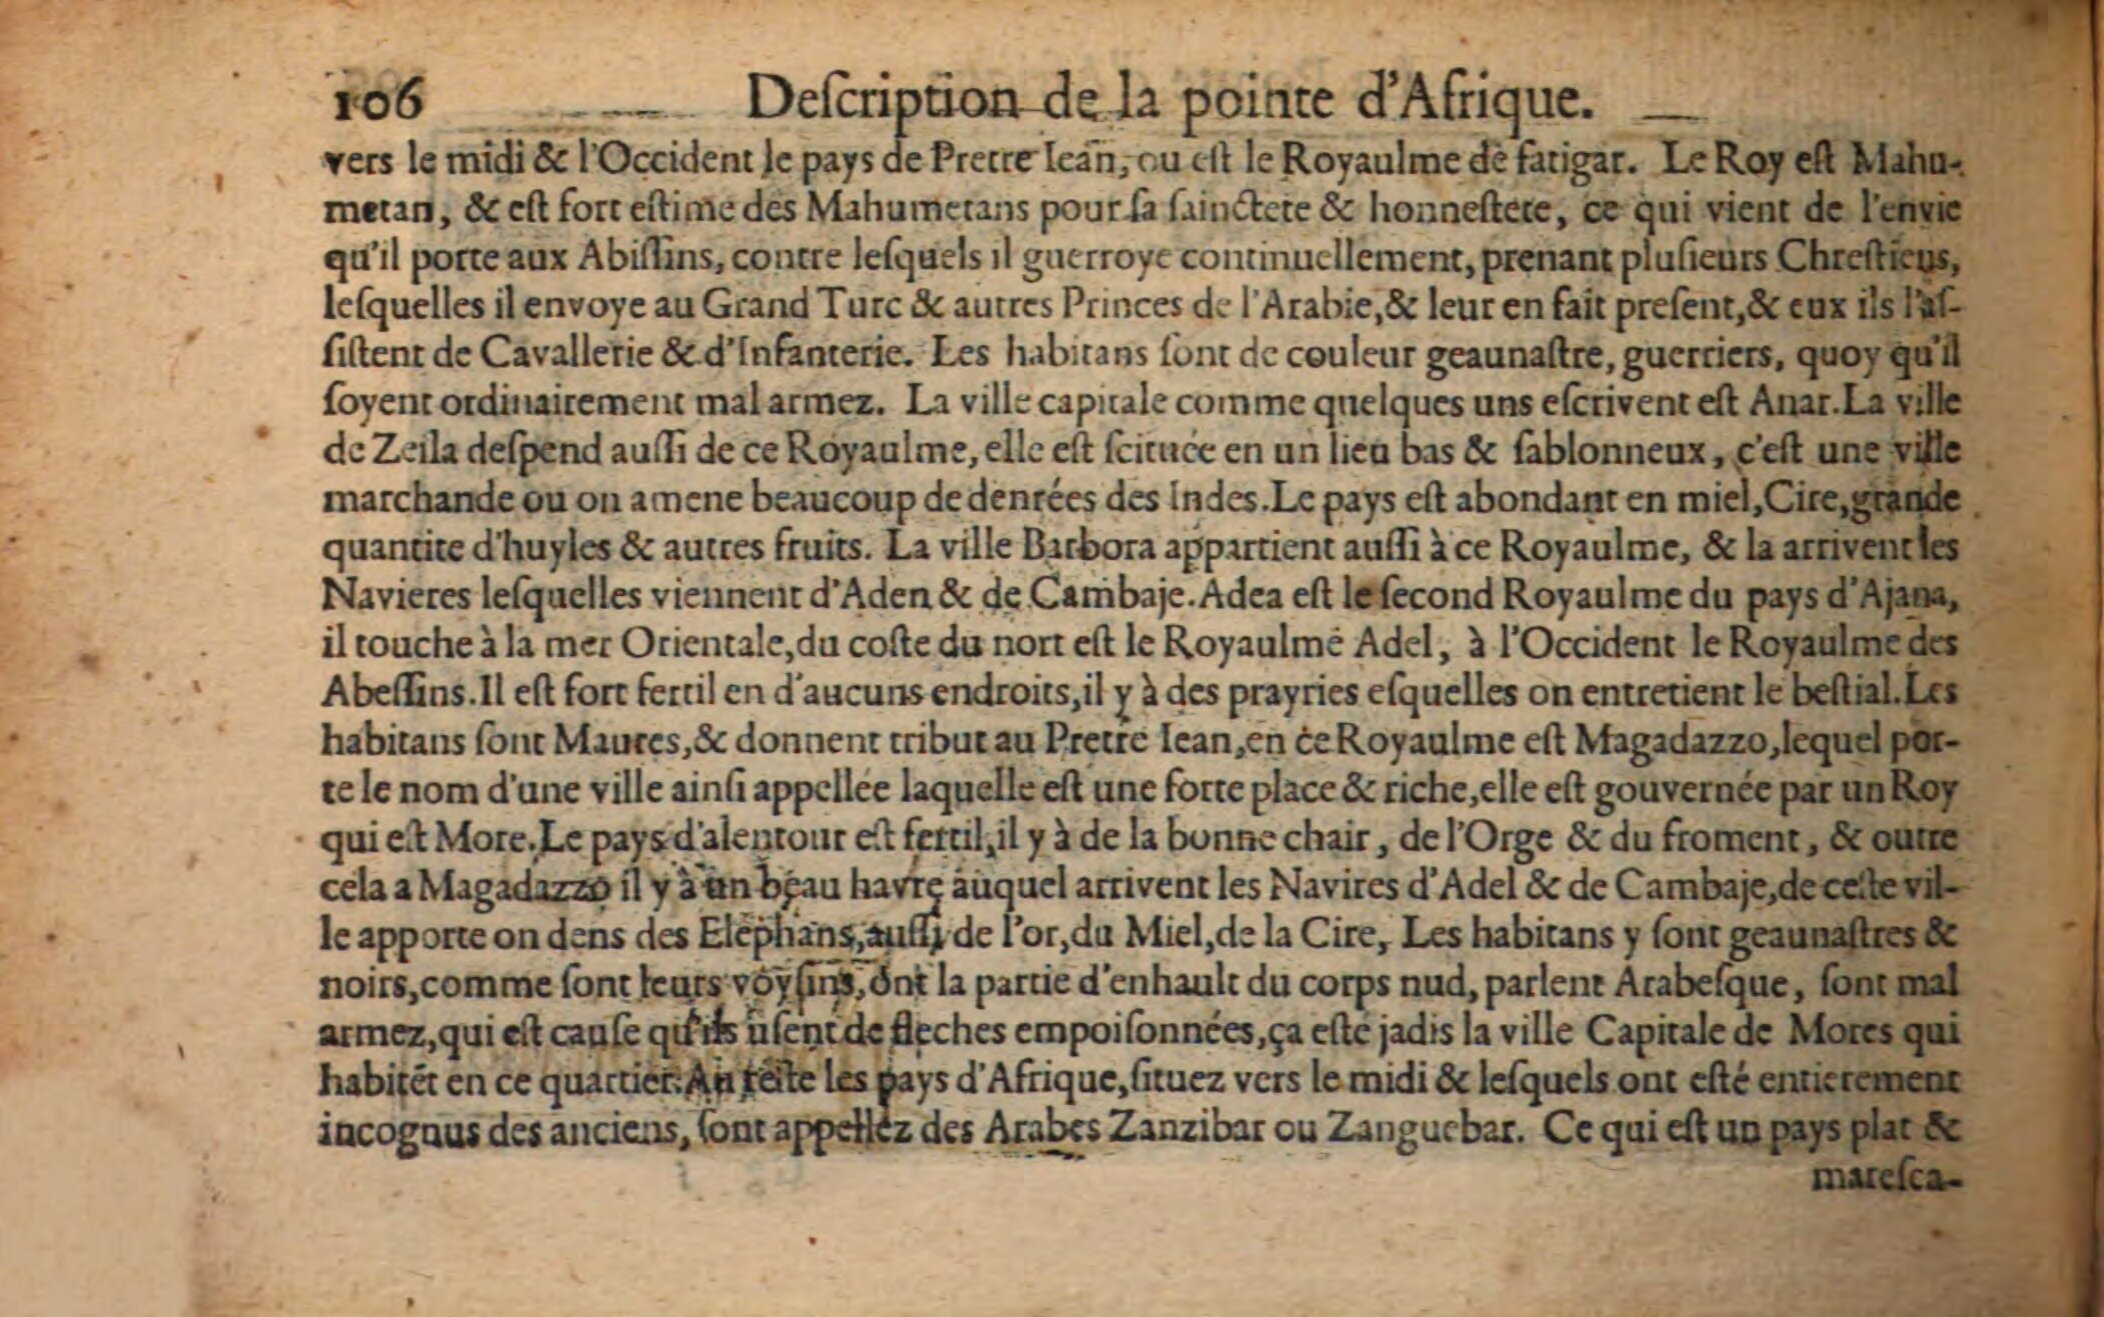 106 Deſcription de la pointe d'Afrique.
vers le midi & l'Occident le pays de Pretre Iean, ou eſt le Royaulme de fatigar. Le Roy eſt Mahu-
metan, & eſt fort eſtime des Mahumetans pour ſa ſainctete & honneſtete, ce qui vient de l'envie
qu'il porte aux Abiſſins, contre leſquels il guerroye continuellement, prenant pluſieurs Chreſtieus,
leſquelles il envoye au Grand Turc & autres Princes de l'Arabie, & leur en fait preſent, & eux ils l'aſ-
ſiſtent de Cavallerie & d'Infanterie. Les habitans ſont de couleur geaunaſtre, guerriers, quoy qu'il
ſoyent ordinairement mal armez. La ville capitale comme quelques uns eſcrivent eſt Anar. La ville
de Zeila deſpend auſſi de ce Royaulme, elle eſt ſcituée en un lieu bas & ſablonneux, c'eſt une ville
marchande ou on amene beaucoup de denrées des Indes. Le pays eſt abondant en miel, Cire, grande
quantite d'huyles & autres fruits. La ville Barbora appartient auſſi à ce Royaulme, & la arrivent les
Navieres leſquelles viennent d'Aden & de Cambaje. Adea eſt le ſecond Royaulme du pays d'Ajana,
il touche à la mer Orientale, du coſte du nort eſt le Royaulme Adel, à l'Occident le Royaulme des
Abeſſins. Il eſt fort fertil en d'aucuns endroits, il y à des prayries eſquelles on entretient le beſtial. Les
habitans ſont Maures, & donnent tribut au Pretre Iean, en ce Royaulme eſt Magadazzo, lequel por-
te le nom d'une ville ainſi appellée laquelle eſt une forte place & riche, elle eſt gouvernée par un Roy
qui eſt More. Le pays d'alentour eſt fertil, il y à de la bonne chair, de l'Orge & du froment, & outre
cela a Magadazzo il y à un beau havre auquel arrivent les Navires d'Adel & de Cambaje, de ceſte vil-
le apporte on dens des Elephans, auſſi de l'or, du Miel, de la Cire, Les habitans y ſont geaunaſtres &
noirs, comme ſont leurs voyſins, ont la partie d'enhault du corps nud, parlent Arabeſque, ſont mal
armez, qui eſt cauſe qu'ils uſent de fleches empoiſonnées, ça eſte jadis la ville Capitale de Mores qui
habitẽt en ce quartier. Au reſte les pays d'Afrique, ſituez vers le midi & leſquels ont eſté entierement
incognus des anciens, ſont appellez des Arabes Zanzibar ou Zanguebar. Ce qui eſt un pays plat &
mareſca-